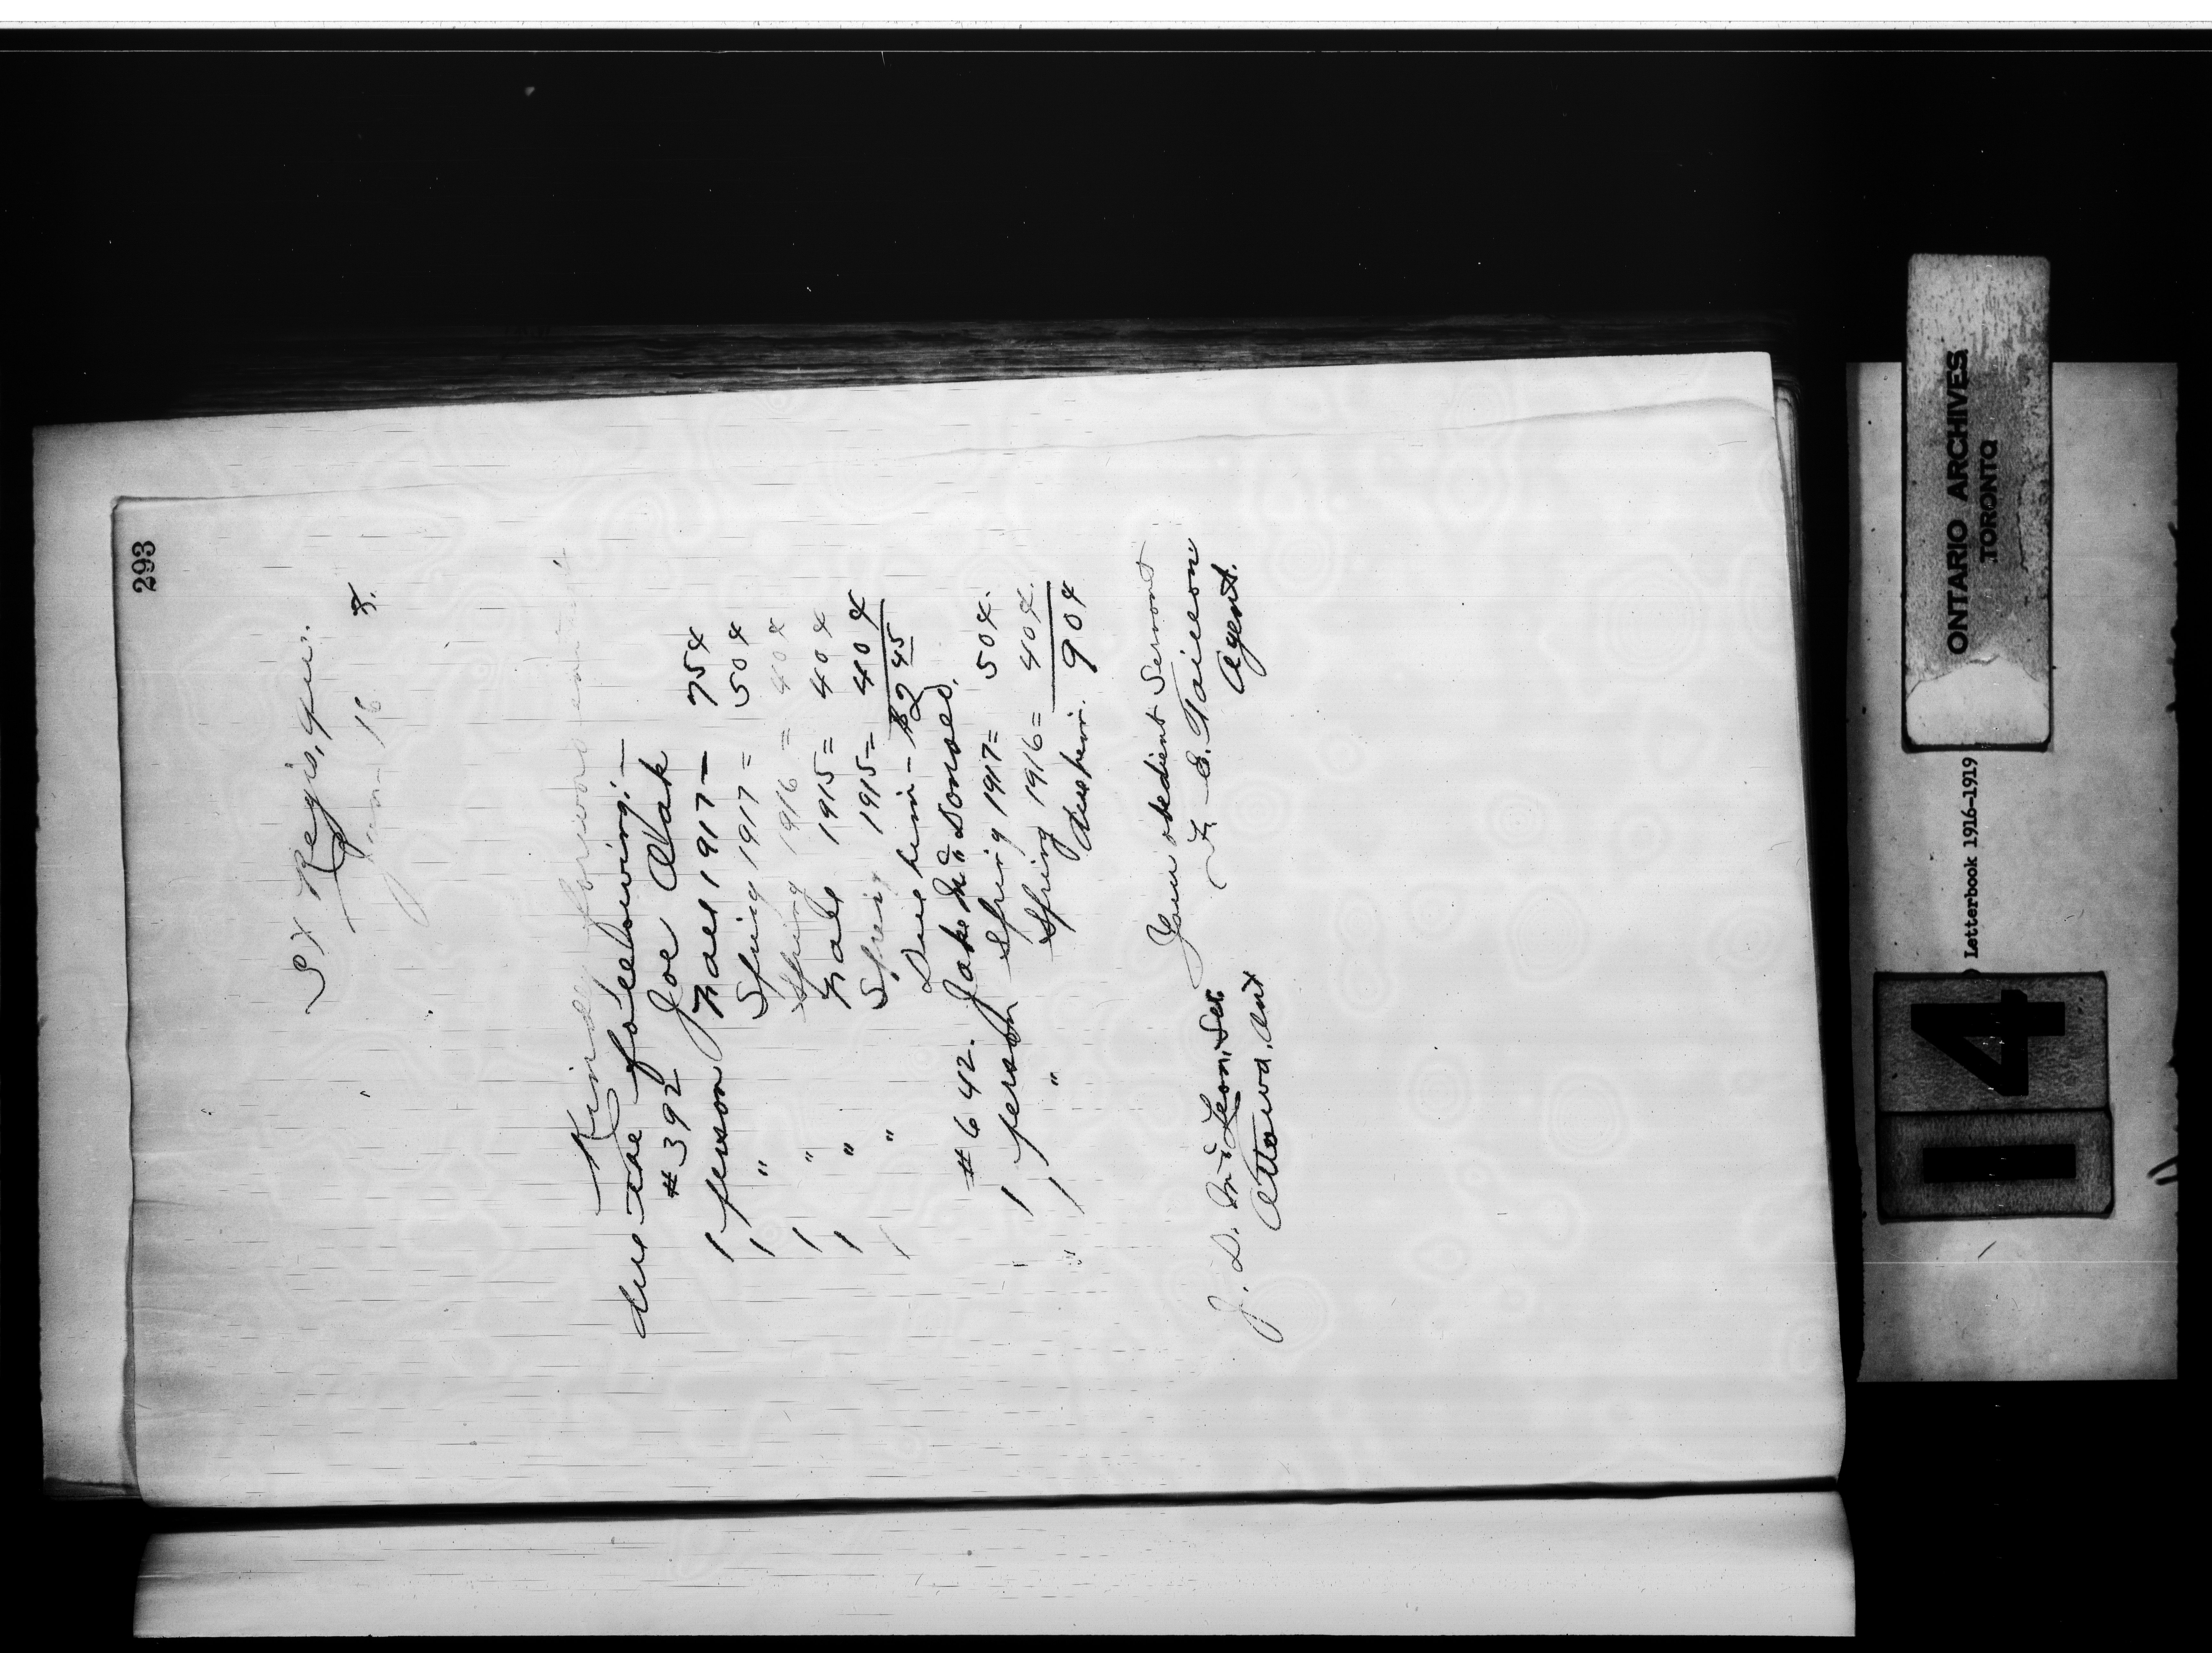 293
St Regis, Que.
June 18 8.
Kindly forward
due the following:—
#392 Joe Oak
1 person Fall 1917— 75¢
1 " Spring 1917 = 50¢
1 " Spring 1916 = 40¢
1 " Fall 1915 = 40¢
1 " Spring 1915 = 40¢
Due him — $2 45
#642. Jake Mc Donald.
1 person Spring 1917 = 50¢.
1 " Spring 1916 = 40¢.
Due him. 90¢
Your obedient Servant
F. E. Taillon
Agent.
J. D. McLean, Sec.
Ottawa, Ont
ONTARIO ARCHIVES
TORONTO
Letterbook 1916-1919
14